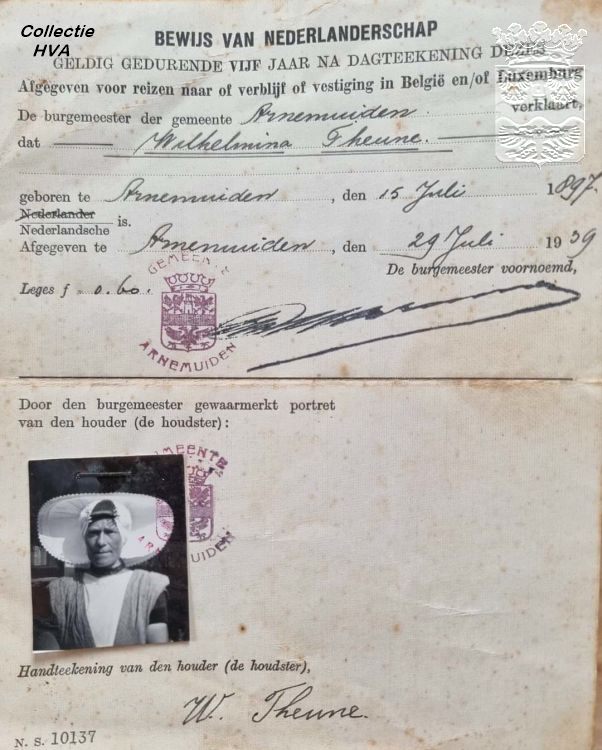 Collectie
HVA
BEWIJS VAN NEDERLANDERSCHAP
GELDIG GEDURENDE VIJF JAAR NA DAGTEEKENING DEZES
Afgegeven voor reizen naar of verblijf of vestiging in België en/of Luxemburg
De burgemeester der gemeente Arnemuiden verklaart,
dat Wilhelmina Theune.
geboren te Arnemuiden, den 15 Juli 1897.
Nederlander
Nederlandsche is.
Afgegeven te Arnemuiden, den 29 Juli 1939
De burgemeester voornoemd,
Leges f 0.60.
GEMEENTE
ARNEMUIDEN
Door den burgemeester gewaarmerkt portret
van den houder (de houdster):
GEMEENTE
ARNEMUIDEN
Handteekening van den houder (de houdster),
W. Theune.
N. S. 10137